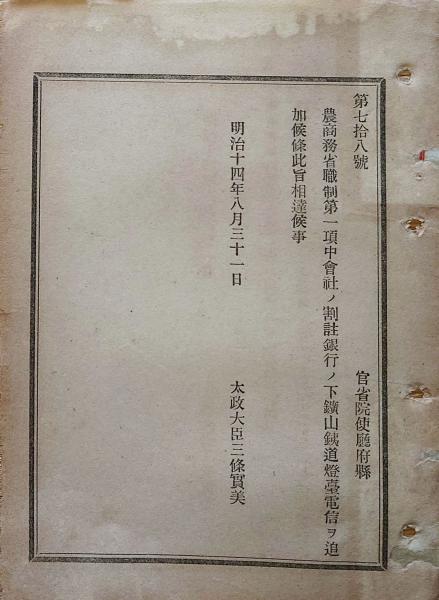 第七拾八號　官省院使廳府縣
農商務省職制第一項中會社ノ割註銀行ノ下鑛山鐵道燈臺電信ヲ追
加候條此旨相達候事
明治十四年八月三十一日　太政大臣三條實美